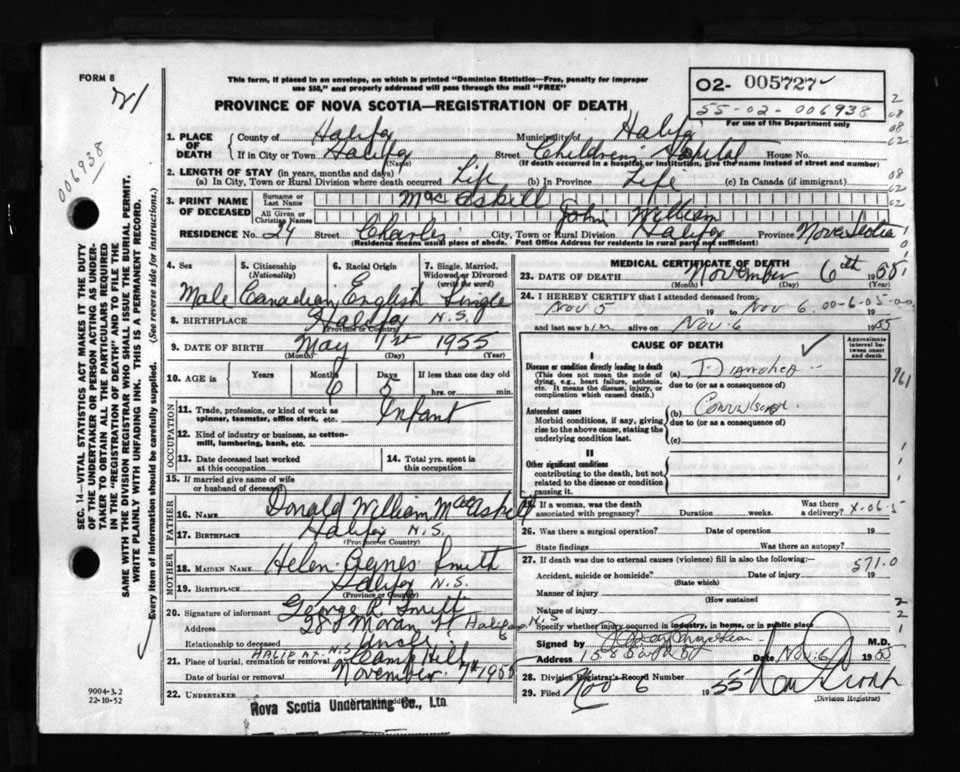 FORM 8
This form, if placed in an envelope, on which is printed "Dominion Statistics—Free, penalty for improper
use $50," and properly addressed will pass through the mail "FREE"
PROVINCE OF NOVA SCOTIA—REGISTRATION OF DEATH
02- 005727
55-02-006938
For use of the Department only
006938
SEC. 14—VITAL STATISTICS ACT MAKES IT THE DUTY
OF THE UNDERTAKER OR PERSON ACTING AS UNDER-
TAKER TO OBTAIN ALL THE PARTICULARS REQUIRED
IN THE "REGISTRATION OF DEATH" AND TO FILE THE
SAME WITH THE DIVISION REGISTRAR WHO SHALL ISSUE THE BURIAL PERMIT.
WRITE PLAINLY WITH UNFADING INK. THIS IS A PERMANENT RECORD.
Every item of information should be carefully supplied. (See reverse side for instructions.)
1. PLACE OF DEATH
County of Halifax Municipality of Halifax
If in City or Town Halifax Street Children's Hospital House No.
(Name) (If death occurred in a hospital or institution, give the name instead of street and number)
2. LENGTH OF STAY (in years, months and days)
(a) In City, Town or Rural Division where death occurred Life (b) In Province Life (c) In Canada (if immigrant)
3. PRINT NAME OF DECEASED
Surname or Last Name MacAskill
All Given or Christian Names John William
RESIDENCE No. 24 Street Charles City, Town or Rural Division Halifax Province Nova Scotia
(Residence means usual place of abode. Post Office Address for residents in rural parts not sufficient)
4. Sex 5. Citizenship (Nationality) 6. Racial Origin 7. Single, Married, Widowed or Divorced (write the word)
Male Canadian English Single
8. BIRTHPLACE Halifax N.S.
(Province or Country)
9. DATE OF BIRTH May 1st 1955
(Month) (Day) (Year)
10. AGE in Years Months 6 Days 5 If less than one day old
hrs. or min.
OCCUPATION
11. Trade, profession, or kind of work as spinner, teamster, office clerk, etc. Infant
12. Kind of industry or business, as cotton-mill, lumbering, bank, etc.
13. Date deceased last worked at this occupation 14. Total yrs. spent in this occupation
15. If married give name of wife or husband of deceased
FATHER
16. NAME Donald William MacAskill
17. BIRTHPLACE Halifax N.S.
(Province or Country)
MOTHER
18. MAIDEN NAME Helen Agnes Smith
19. BIRTHPLACE Halifax N.S.
(Province or Country)
20. Signature of informant George R. Smith
Address 28 Moran St Halifax N.S
Relationship to deceased Uncle
HALIFAX N.S
21. Place of burial, cremation or removal Camp Hill
Date of burial or removal November 7th 1955
22. UNDERTAKER Nova Scotia Undertaking Co., Ltd
9004-3.2
22-10-52
MEDICAL CERTIFICATE OF DEATH
23. DATE OF DEATH November 6th 1955
(Month) (Day) (Year)
24. I HEREBY CERTIFY that I attended deceased from:
Nov 5 19 to Nov 6
and last saw him alive on Nov 6 1955
CAUSE OF DEATH
Approximate interval between onset and death
I
Disease or condition directly leading to death
(This does not mean the mode of dying, e.g., heart failure, asthenia, etc. It means the disease, injury, or complication which caused death.)
(a) Diarrhea
due to (or as a consequence of)
Antecedent causes
Morbid conditions, if any, giving rise to the above cause, stating the underlying condition last.
(b) Convulsions
due to (or as a consequence of)
(c)
II
Other significant conditions
contributing to the death, but not related to the disease or condition causing it.
25. If a woman, was the death associated with pregnancy? Duration weeks. Was there a delivery?
X-06-5
26. Was there a surgical operation? Date of operation 19
State findings Was there an autopsy?
27. If death was due to external causes (violence) fill in also the following:
571.0
Accident, suicide or homicide? Date of injury 19
(State which)
Manner of injury
(How sustained
Nature of injury
Specify whether injury occurred in industry, in home, or in public place
Signed by M.D.
Address Date Nov. 6 1955
28. Division Registrar's Record Number
29. Filed Nov 6 1955
(Division Registrar)